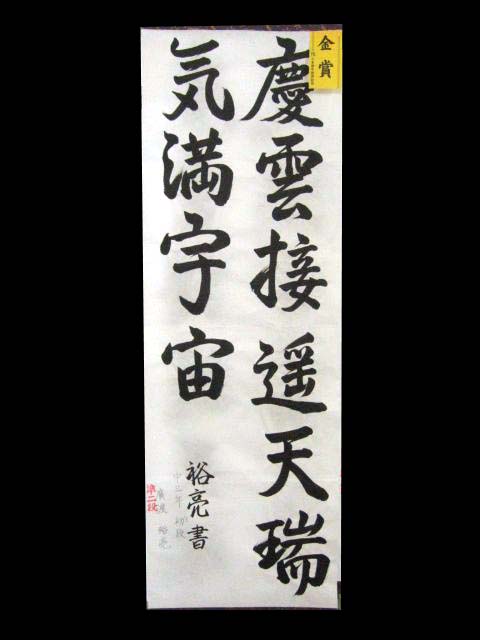 金賞
慶雲接遥天瑞
気満宇宙
裕亮書
中三年 初段
準二段
廣度 裕亮